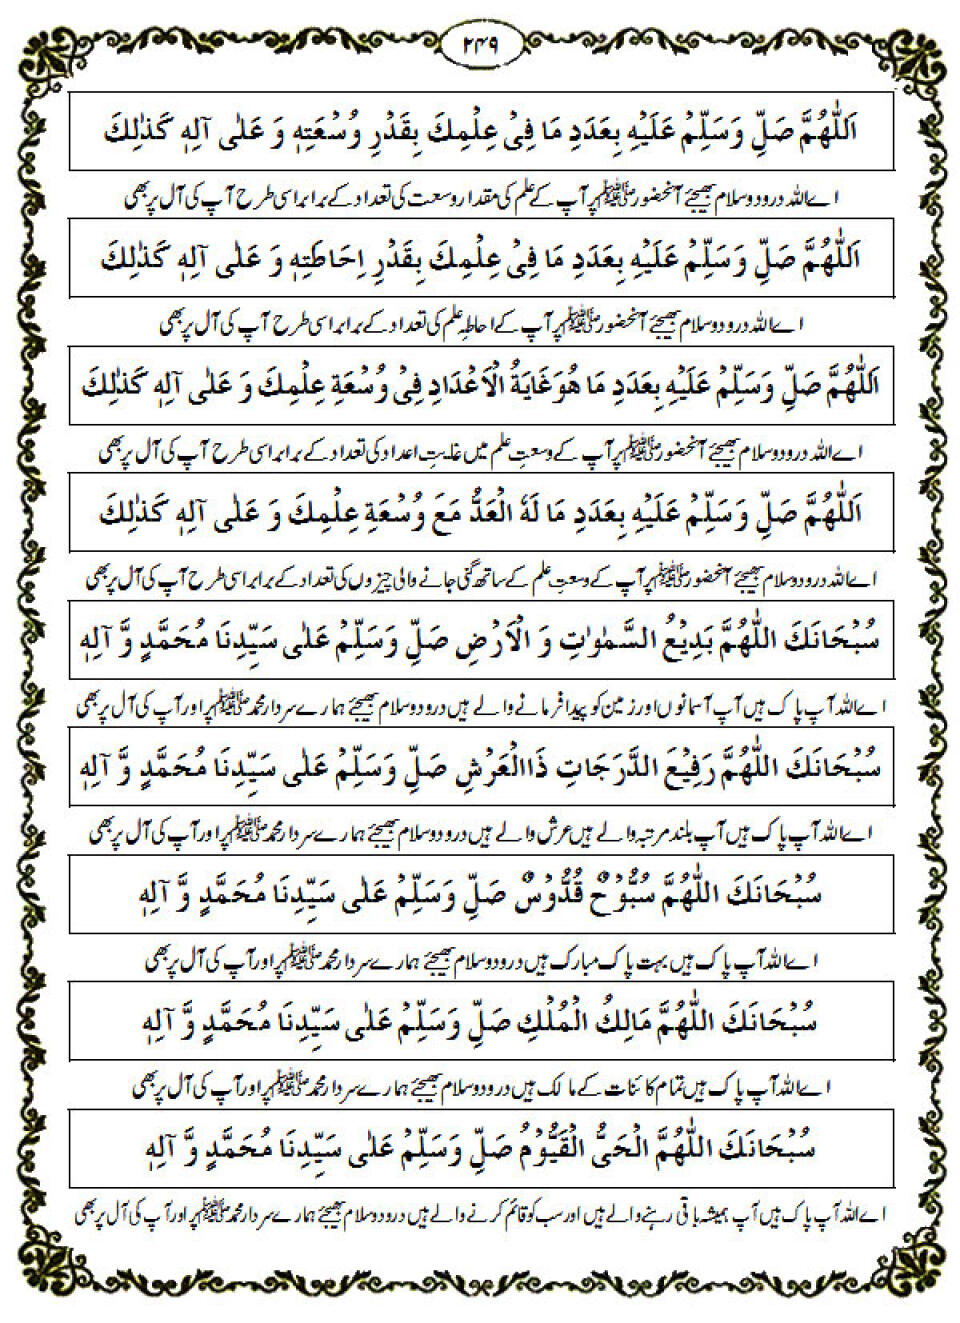 ۲۴۹
اَللّٰهُمَّ صَلِّ وَسَلِّمْ عَلَيْهِ بِعَدَدِ مَا فِىْ عِلْمِكَ بِقَدْرِ وُسْعَتِهٖ وَ عَلٰى آلِهٖ كَذٰلِكَ
اے اللہ درود و سلام بھیجئے آنحضور ﷺ پر آپ کے علم کی مقدار وسعت کی تعداد کے برابر اسی طرح آپ کی آل پر بھی
اَللّٰهُمَّ صَلِّ وَسَلِّمْ عَلَيْهِ بِعَدَدِ مَا فِىْ عِلْمِكَ بِقَدْرِ اِحَاطَتِهٖ وَ عَلٰى آلِهٖ كَذٰلِكَ
اے اللہ درود و سلام بھیجئے آنحضور ﷺ پر آپ کے احاطہِ علم کی تعداد کے برابر اسی طرح آپ کی آل پر بھی
اَللّٰهُمَّ صَلِّ وَسَلِّمْ عَلَيْهِ بِعَدَدِ مَا هُوَ غَايَةُ الْاَعْدَادِ فِىْ وُسْعَةِ عِلْمِكَ وَ عَلٰى آلِهٖ كَذٰلِكَ
اے اللہ درود و سلام بھیجئے آنحضور ﷺ پر آپ کے وسعتِ علم میں غایتِ اعداد کی تعداد کے برابر اسی طرح آپ کی آل پر بھی
اَللّٰهُمَّ صَلِّ وَسَلِّمْ عَلَيْهِ بِعَدَدِ مَا لَهُ الْعَدُّ مَعَ وُسْعَةِ عِلْمِكَ وَ عَلٰى آلِهٖ كَذٰلِكَ
اے اللہ درود و سلام بھیجئے آنحضور ﷺ پر آپ کے وسعتِ علم کے ساتھ گنی جانے والی چیزوں کی تعداد کے برابر اسی طرح آپ کی آل پر بھی
سُبْحَانَكَ اللّٰهُمَّ بَدِيْعُ السَّمٰوٰتِ وَ الْاَرْضِ صَلِّ وَسَلِّمْ عَلٰى سَيِّدِنَا مُحَمَّدٍ وَّ آلِهٖ
اے اللہ آپ پاک ہیں آپ آسمانوں اور زمین کو پیدا فرمانے والے ہیں درود و سلام بھیجئے ہمارے سردار محمد ﷺ پر اور آپ کی آل پر بھی
سُبْحَانَكَ اللّٰهُمَّ رَفِيْعَ الدَّرَجَاتِ ذَاالْعَرْشِ صَلِّ وَسَلِّمْ عَلٰى سَيِّدِنَا مُحَمَّدٍ وَّ آلِهٖ
اے اللہ آپ پاک ہیں آپ بلند مرتبہ والے ہیں عرش والے ہیں درود و سلام بھیجئے ہمارے سردار محمد ﷺ پر اور آپ کی آل پر بھی
سُبْحَانَكَ اللّٰهُمَّ سُبُّوْحٌ قُدُّوْسٌ صَلِّ وَسَلِّمْ عَلٰى سَيِّدِنَا مُحَمَّدٍ وَّ آلِهٖ
اے اللہ آپ پاک ہیں بہت پاک مبارک ہیں درود و سلام بھیجئے ہمارے سردار محمد ﷺ پر اور آپ کی آل پر بھی
سُبْحَانَكَ اللّٰهُمَّ مَالِكُ الْمُلْكِ صَلِّ وَسَلِّمْ عَلٰى سَيِّدِنَا مُحَمَّدٍ وَّ آلِهٖ
اے اللہ آپ پاک ہیں تمام کائنات کے مالک ہیں درود و سلام بھیجئے ہمارے سردار محمد ﷺ پر اور آپ کی آل پر بھی
سُبْحَانَكَ اللّٰهُمَّ الْحَىُّ الْقَيُّوْمُ صَلِّ وَسَلِّمْ عَلٰى سَيِّدِنَا مُحَمَّدٍ وَّ آلِهٖ
اے اللہ آپ پاک ہیں آپ ہمیشہ باقی رہنے والے ہیں اور سب کو قائم کرنے والے ہیں درود و سلام بھیجئے ہمارے سردار محمد ﷺ پر اور آپ کی آل پر بھی